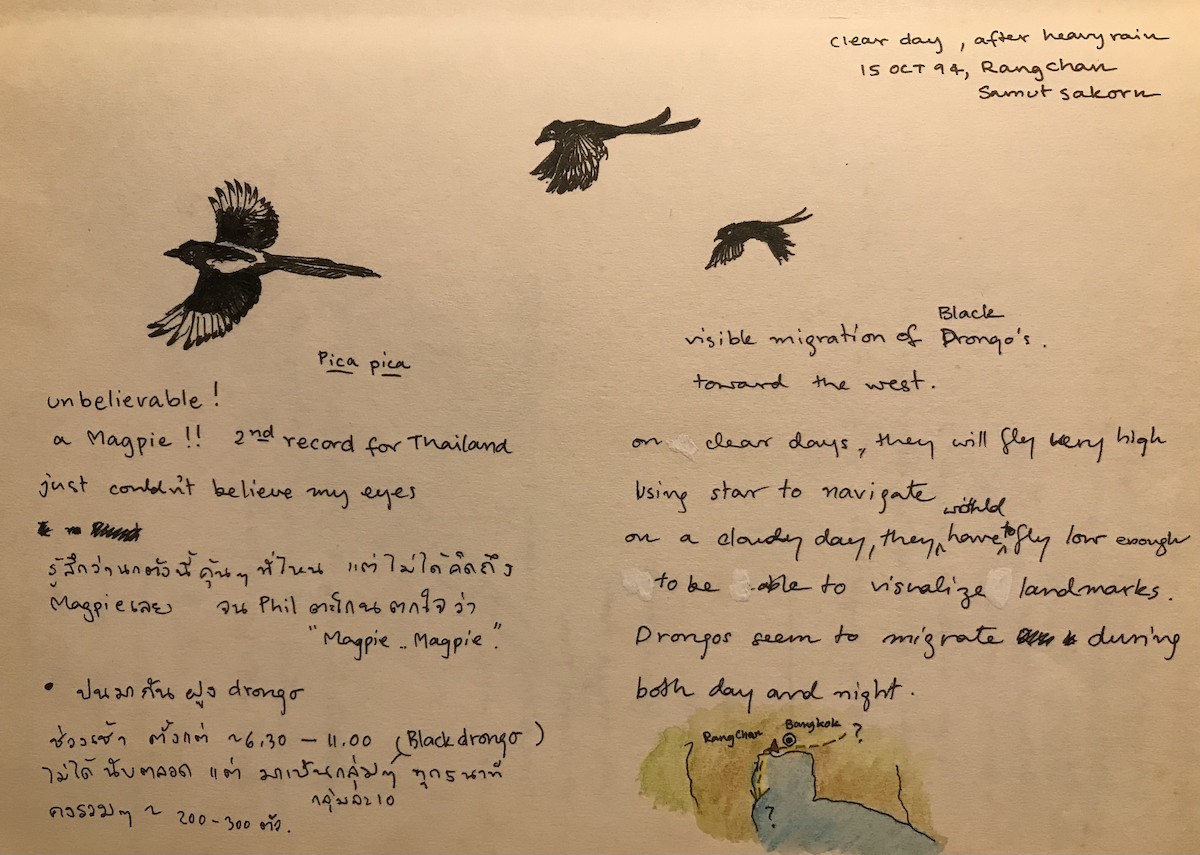 clear day, after heavy rain
15 OCT 94, Rangchan
Samut sakorn
Pica pica
unbelievable!
a Magpie!! 2nd record for Thailand
just couldn't believe my eyes
รู้สึกว่านกตัวนี้คุ้นๆ ที่ไหน แต่ ไม่ได้คิดถึง
Magpie เลย จน Phil ตะโกน ตกใจ ว่า
"Magpie .. Magpie".
• ปนมากับ ฝูง drongo
ช่วงเช้า ตั้งแต่ ~6.30 – 11.00 (Black drongo)
ไม่ได้ นับตลอด แต่ มาเป็นกลุ่มๆ ทุก 5 นาที
กลุ่มละ 10
คงรวมๆ ~ 200-300 ตัว.
Black
visible migration of Drongo's.
toward the west.
on clear days, they will fly very high
Using star to navigate
on a cloudy day, they have to fly low enough
to be able to visualize landmarks.
Drongos seem to migrate during
both day and night.
Rangchan
Bangkok
?
?